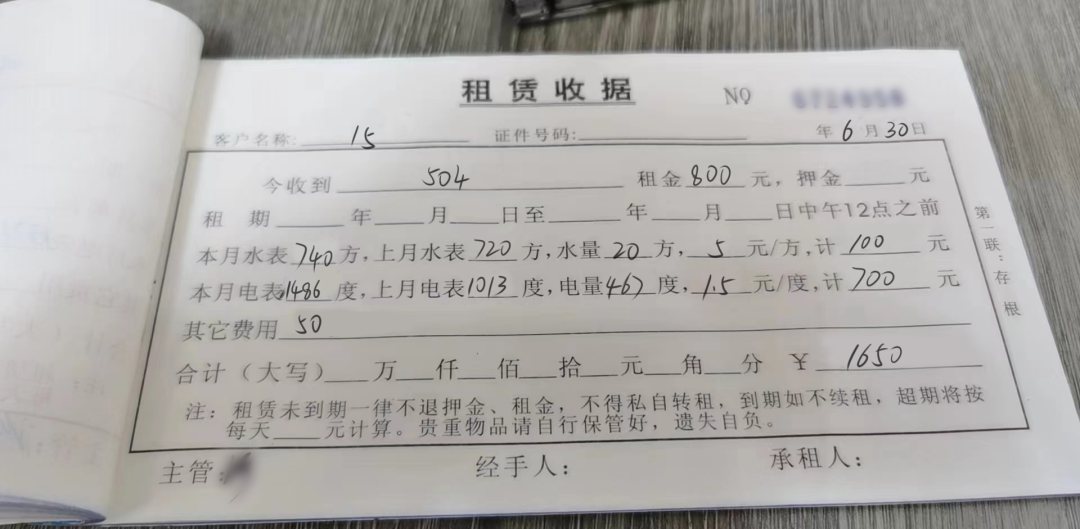 租赁收据 NO
客户名称: 15 证件号码: 年 6 月 30 日
今收到 504 租金 800 元，押金 元
租 期 年 月 日至 年 月 日中午12点之前
本月水表 740 方，上月水表 720 方，水量 20 方， 5 元/方，计 100 元
本月电表 1486 度，上月电表 1013 度，电量 467 度， 1.5 元/度，计 700 元
其它费用 50
合计（大写） 万 仟 佰 拾 元 角 分 ￥ 1650
注：租赁未到期一律不退押金、租金，不得私自转租，到期如不续租，超期将按
每天 元计算。贵重物品请自行保管好，遗失自负。
主管： 经手人： 承租人：
第一联：存根